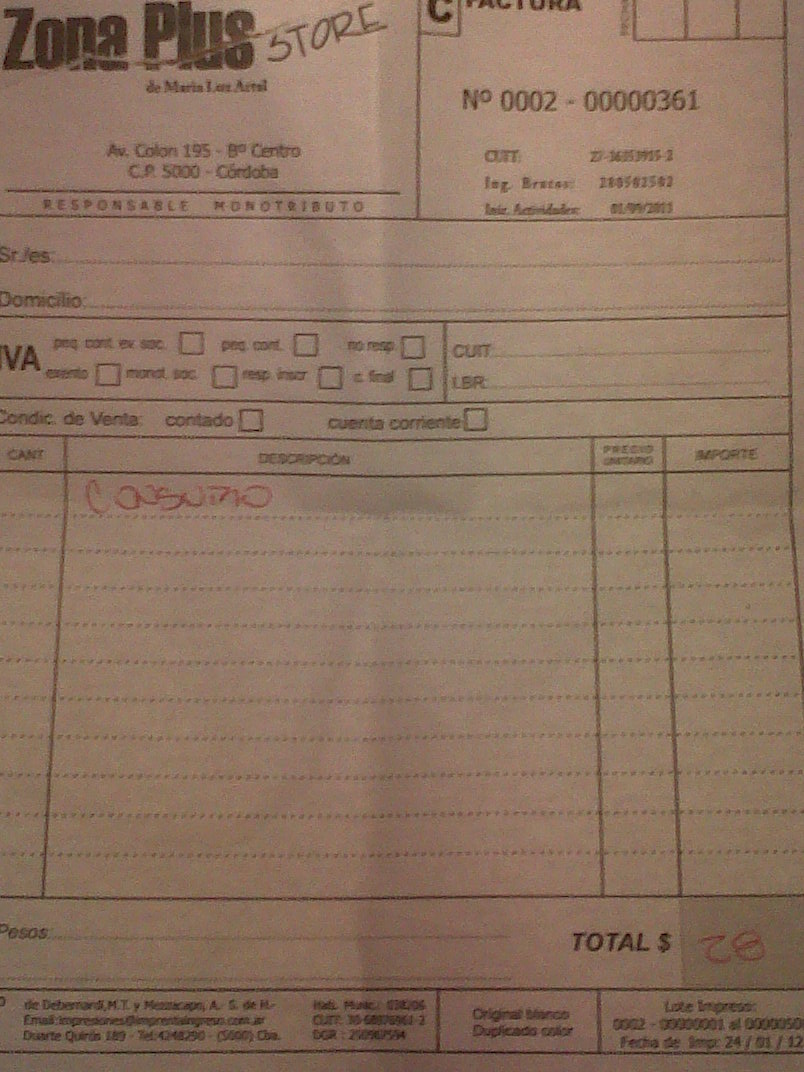 Zona Plus STORE
de Maria Luz Artal
Av. Colon 195 - Bº Centro
C.P. 5000 - Córdoba
RESPONSABLE MONOTRIBUTO
C FACTURA
Nº 0002 - 00000361
CUIT:
Ing. Brutos: 280502502
Inic. Actividades: 01/09/2011
Sr./es:
Domicilio:
IVA
peq. cont. ev. soc. peq. cont. no resp.
exento monot. soc. resp. inscr c. final
CUIT:
I.BR:
Condic. de Venta: contado cuenta corriente
CANT DESCRIPCIÓN PRECIO UNITARIO IMPORTE
CONSUMO
Pesos:
TOTAL $ 28
de Debernardi, M.T. y Mezzacapo, A. - S. de H.-
Email: impresiones@imprentaingreso.com.ar
Duarte Quirós 189 - Tel: 4248290 - (5000) Cba.
Hab. Munic.:
CUIT:
DGR :
Original blanco
Duplicado color
Lote Impreso:
0002 - 00000001 al
Fecha de Imp: 24 / 01 / 12